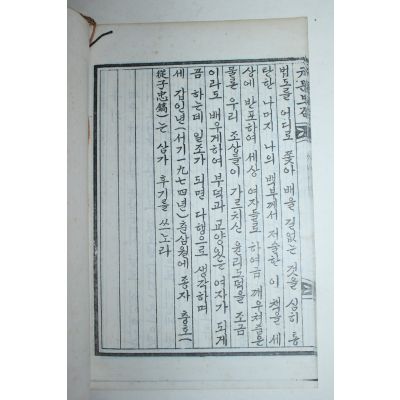 법도를 어디로 좇아 배울 길없는 것을 심히 통
탄한 나머지 나의 백부께서 저술한 이 책을 세
상에 반포하여 세상 여자들로 하여금 깨우쳐줌은
물론 우리 조상들이 가르치신 윤리도덕을 조금
이라도 배우게하여 부덕과 교양있는 여자가 되게
끔 하는데 일조가 되면 다행으로 생각하며
세 갑인년(서기一九七四년)춘삼월에 종자 충호(
從子忠鎬)는 삼가 후기를 쓰노라